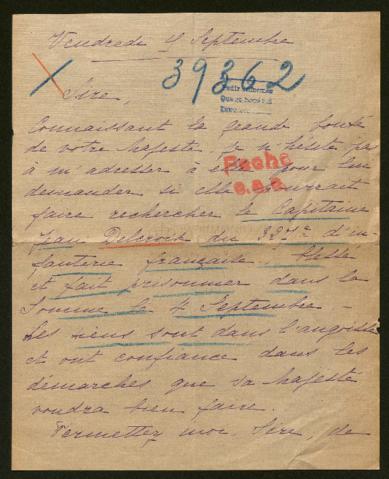 Vendredi 8 Septembre
39362
Sire,
Connaissant la grande bonté
de votre Majesté je n'hésite pas
à m'adresser à elle pour lui
demander si elle pourrait
Recha
faire rechercher le Capitaine
Jean Delcroix du 327me d'in-
fanterie française, blessé
et fait prisonnier dans la
Somme le 4 Septembre -
Les siens sont dans l'angoisse
et ont confiance dans les
démarches que sa Majesté
voudra bien faire.
Permettez moi, Sire, de